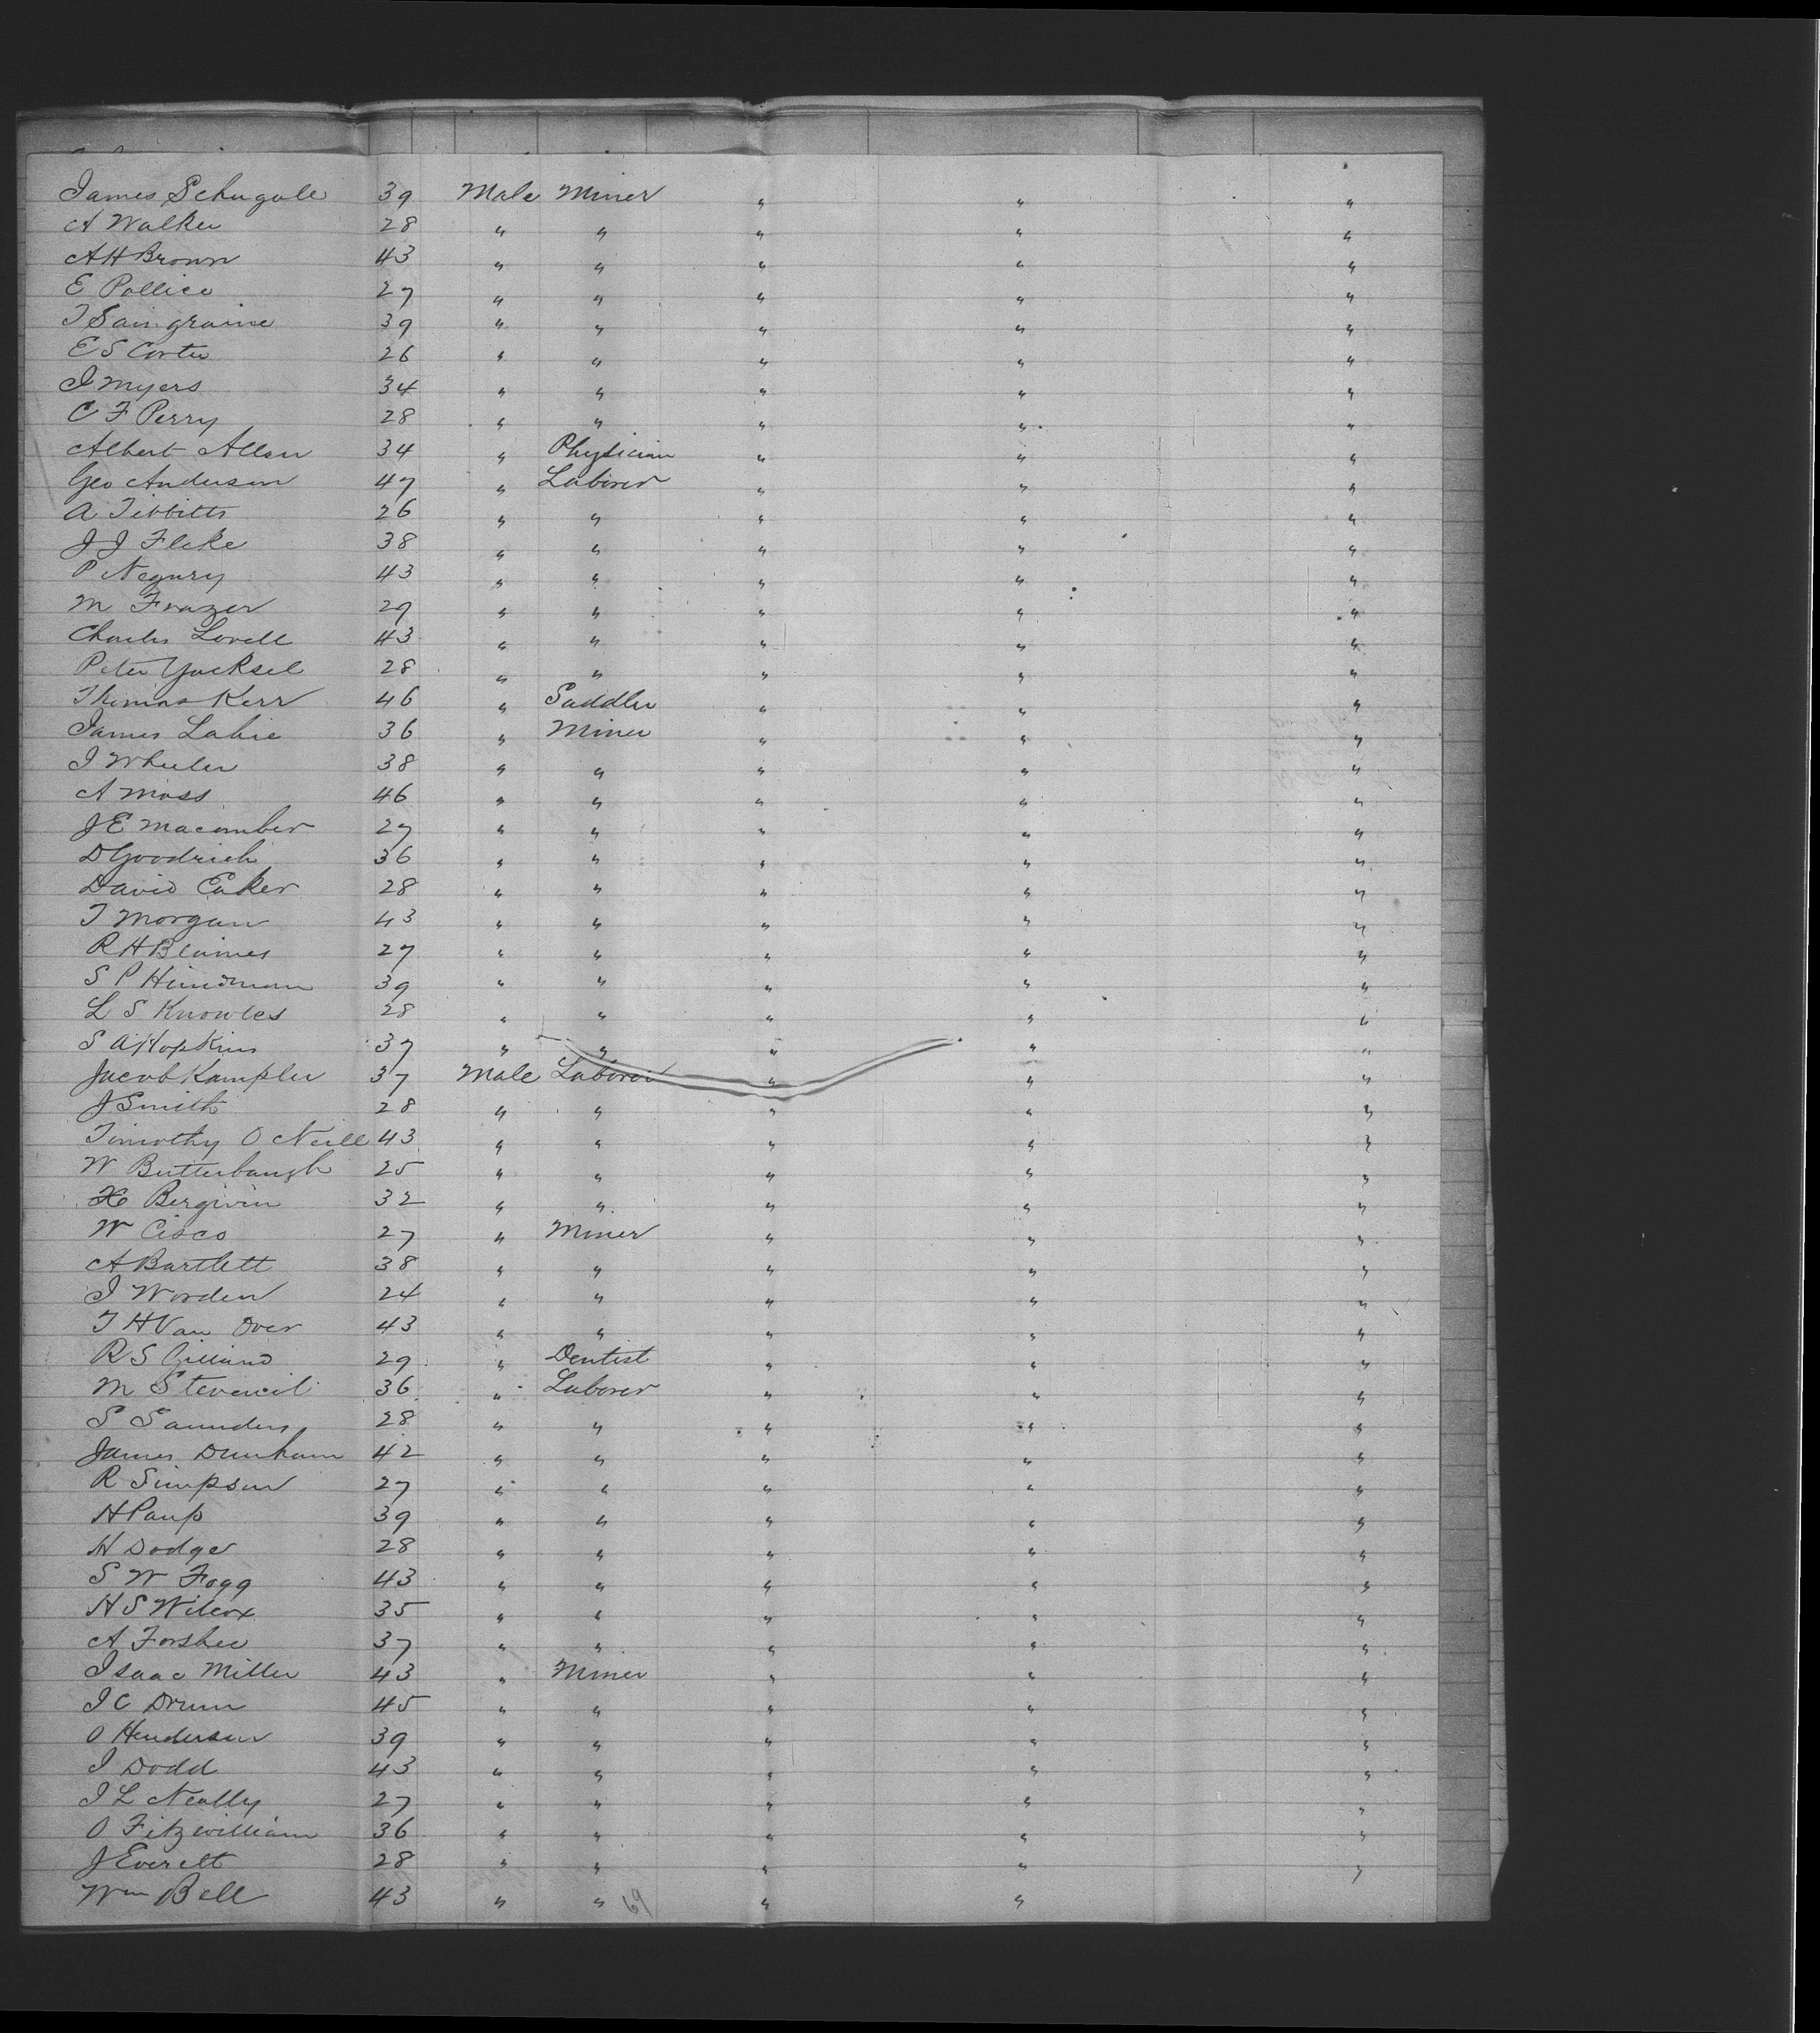 James Schugole 39 Male Miner " " "
A Walker 28 " " " " "
A H Brown 43 " " " " "
E Pollice 27 " " " " "
T Saingraine 39 " " " " "
E S Carter 26 " " " " "
I Myers 34 " " " " "
C F Perry 28 " " " " "
Albert Allen 34 " Physician " " "
Geo Anderson 47 " Laborer " " "
A Tibbitts 26 " " " " "
J J Fleke 38 " " " " "
P Negury 43 " " " " "
M Frazer 29 " " " " "
Charles Lovell 43 " " " " "
Peter Yacksel 28 " " " " "
Thomas Kerr 46 " Saddler " " "
James Labie 36 " Miner " " "
I Wheeler 38 " " " " "
A Moss 46 " " " " "
J E Macomber 27 " " " " "
D Goodrich 36 " " " " "
David Eaker 28 " " " " "
T Morgan 43 " " " " "
R H Blaines 27 " " " " "
S P Hindman 39 " " " " "
L S Knowles 28 " " " " "
S A Hopkins 37 " " " " "
Jacob Kampler 37 Male Laborer " " "
J Smith 28 " " " " "
Timothy O Neill 43 " " " " "
W Butterbaugh 25 " " " " "
H Bergivin 32 " " " " "
W Cisco 27 " Miner " " "
A Bartlett 38 " " " " "
I Worden 24 " " " " "
T H Van Over 43 " " " " "
R S Gilland 29 " Dentist " " "
M Stevencil 36 " Laborer " " "
S Saunders 28 " " " " "
James Dunham 42 " " " " "
R Simpson 27 " " " " "
H Paup 39 " " " " "
H Dodge 28 " " " " "
S W Fogg 43 " " " " "
H S Wilcox 35 " " " " "
A Forshee 37 " " " " "
Isaac Miller 43 " Miner " " "
I C Drum 45 " " " " "
O Henderson 39 " " " " "
I Dodd 43 " " " " "
I L Neally 27 " " " " "
O Fitzwilliam 36 " " " " "
J Everett 28 " " " " "
Wm Bell 43 " " " "
69